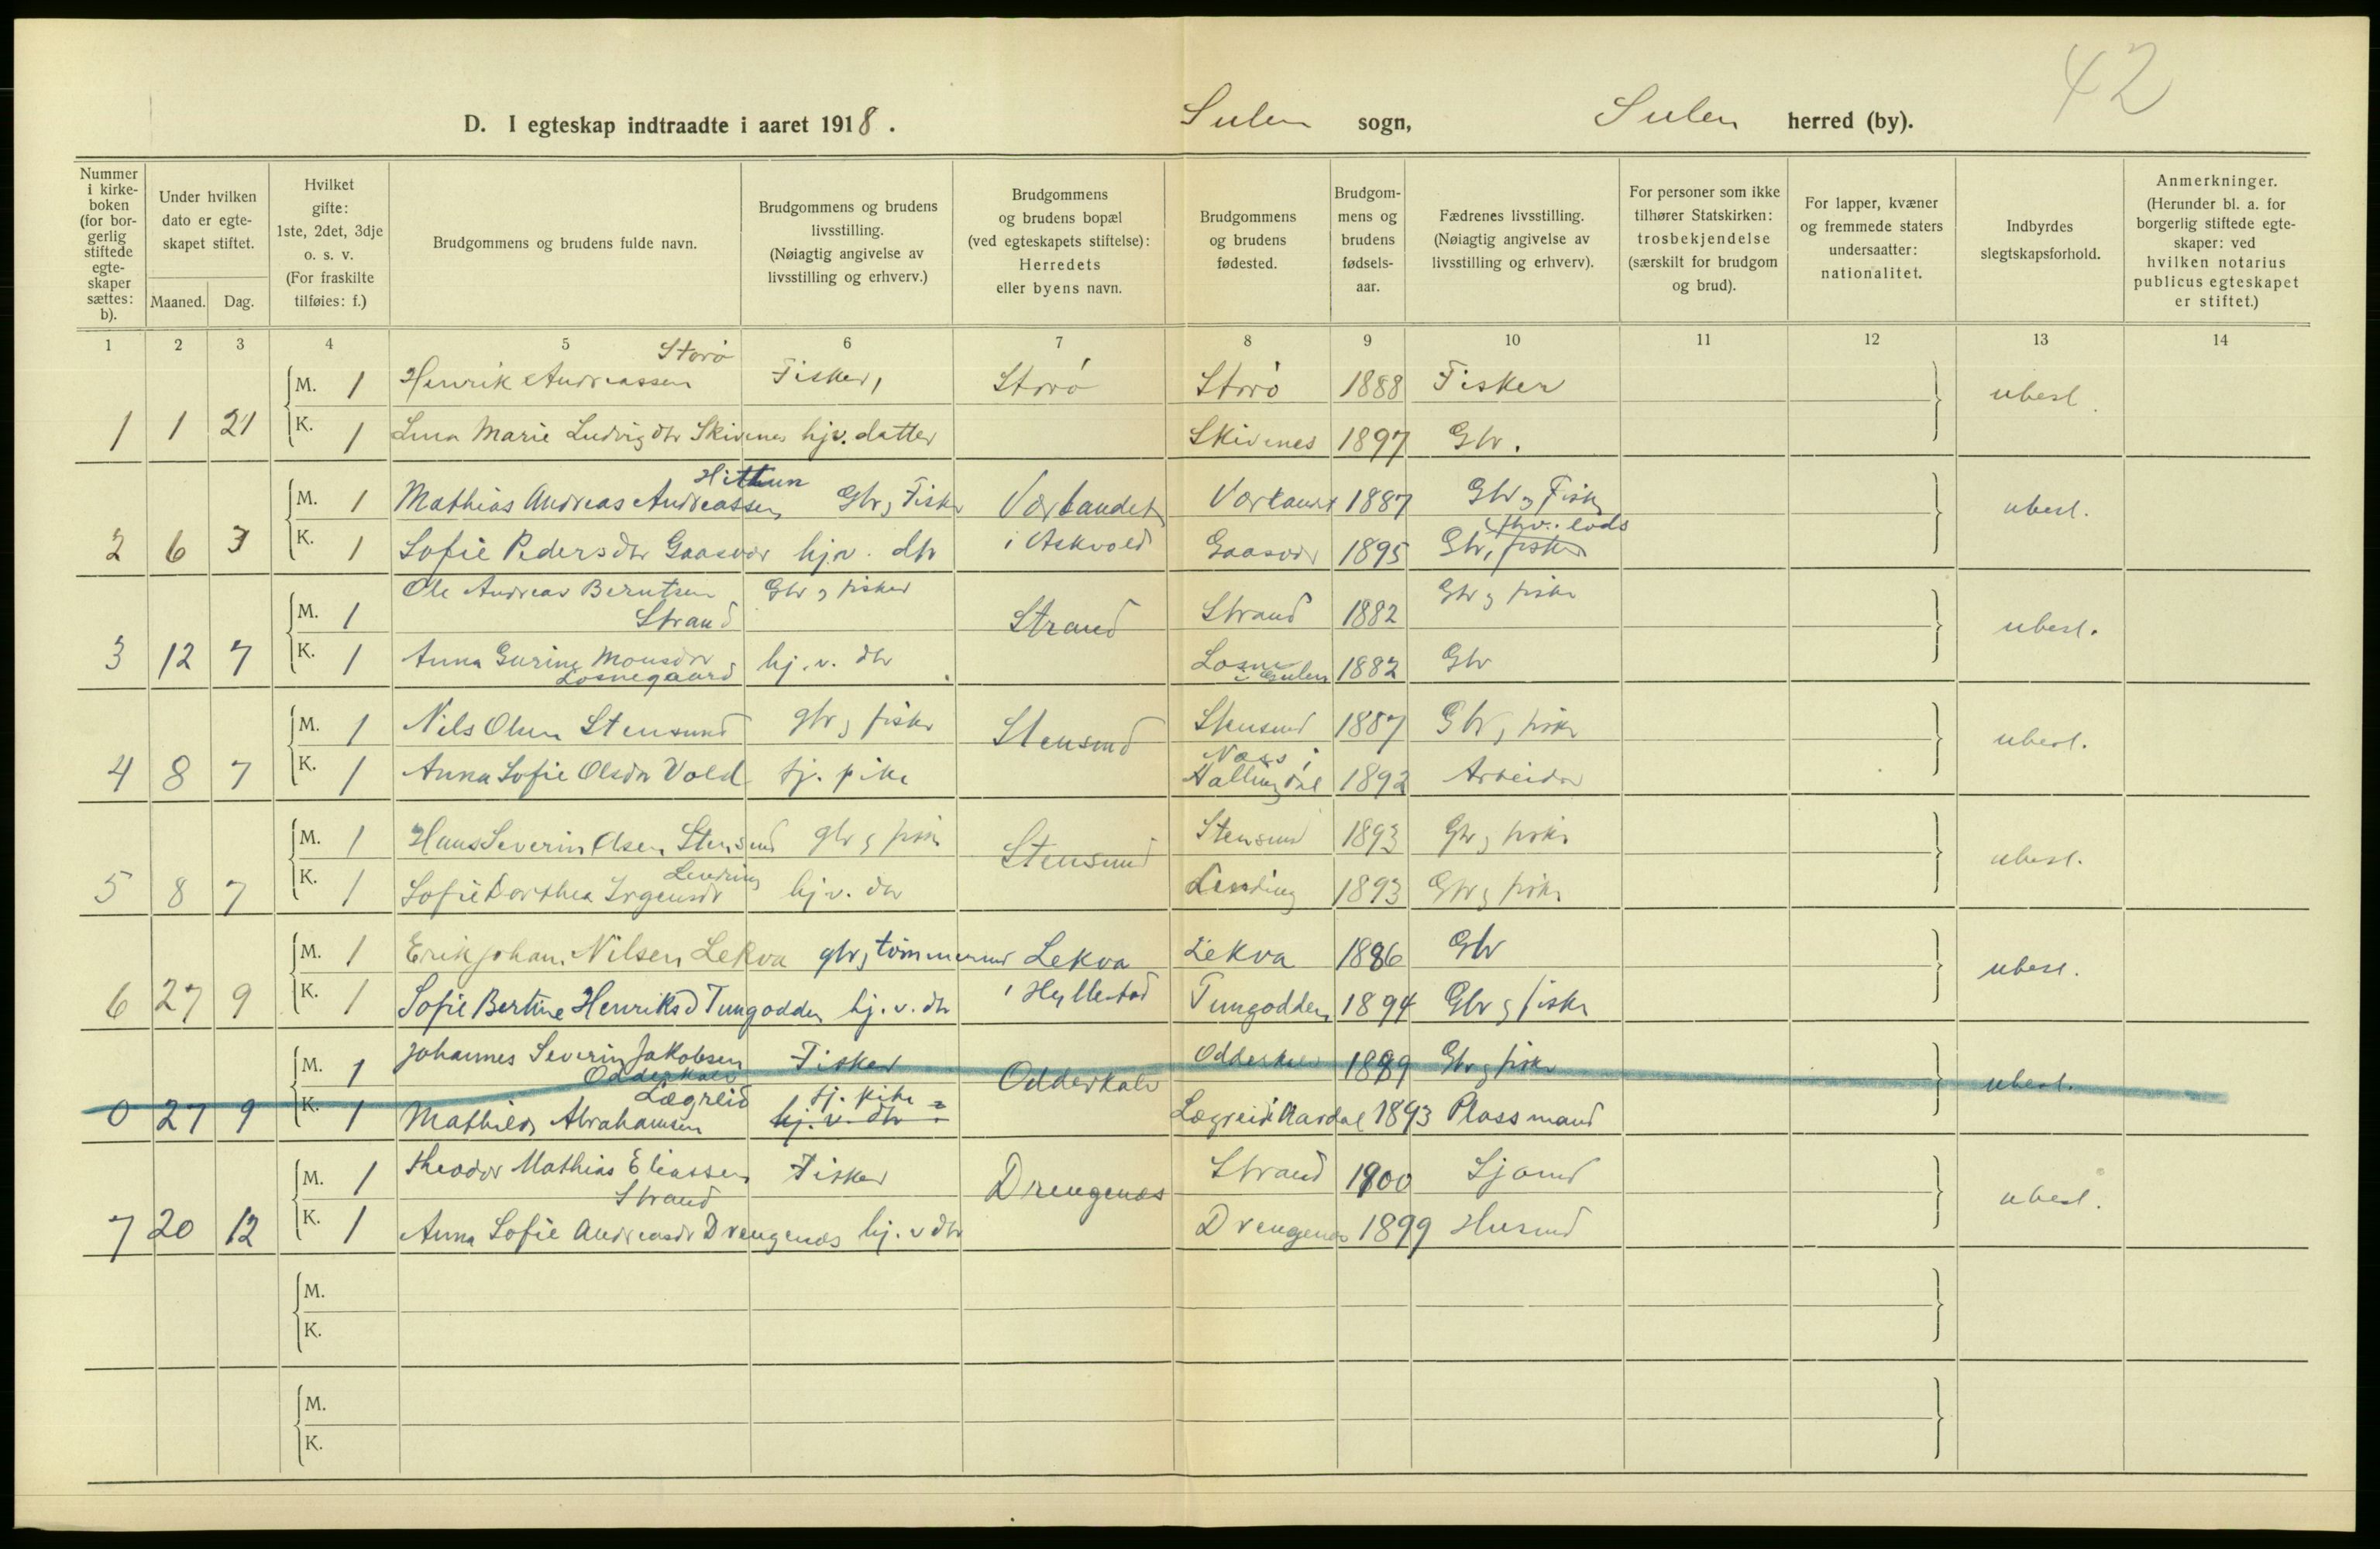 42
D. I egteskap indtraadte i aaret 1918. Sulen sogn, Sulen herred (by).
Nummer i kirkeboken (for borgerlig stiftede egteskaper sættes: b).
Under hvilken dato er egteskapet stiftet.
Maaned. Dag.
Hvilket gifte: 1ste, 2det, 3dje o. s. v. (For fraskilte tilføies: f.)
Brudgommens og brudens fulde navn.
Brudgommens og brudens livsstilling. (Nøiagtig angivelse av livsstilling og erhverv.)
Brudgommens og brudens bopæl (ved egteskapets stiftelse): Herredets eller byens navn.
Brudgommens og brudens fødested.
Brudgommens og brudens fødselsaar.
Fædrenes livsstilling. (Nøiagtig angivelse av livsstilling og erhverv).
For personer som ikke tilhører Statskirken: trosbekjendelse (særskilt for brudgom og brud).
For lapper, kvæner og fremmede staters undersaatter: nationalitet.
Indbyrdes slegtskapsforhold.
Anmerkninger. (Herunder bl. a. for borgerlig stiftede egteskaper: ved hvilken notarius publicus egteskapet er stiftet.)
1 2 3 4 5 6 7 8 9 10 11 12 13 14
Storö
M. 1 Henrik Andreassen Fisker, Storö Storö 1888 Fisker ubesl.
1 1 21 K. 1 Lina Marie Ludvigdtr Skivenes hjv. datter Skivenes 1897 Gbr.
Hittun
M. 1 Mathias Andreas Andreassen Gbr, Fisker Værlandet Værlandet 1887 Gbr, Fisk ubesl.
fhv. lods
2 6 3 K. 1 Sofie Pedersdtr Gaasvær hj.v. dtr i Askvold Gaasvær 1895 Gbr, fisker
Ole Andreas Berntsen Gbr, fisker Gbr, fisker
M. 1 Strand Strand Strand 1882 ubesl.
3 12 7 K. 1 Anna Gurine Monsdtr hj. v. dtr Losne 1882 Gbr
Losnegaard i Gulen
M. 1 Nils Olsen Stensund gbr, fisker Stensund Stensund 1887 Gbr, fisker ubesl.
Næs i
4 8 7 K. 1 Anna Sofie Olsdtr Vold tj. pike Hallingdal 1892 Arbeider
M. 1 Hans Severin Olsen Stensund gbr, fisker Stensund Stensund 1893 Gbr, fisker ubesl.
Lending
5 8 7 K. 1 Sofie Dorthea Irgensdr hj.v. dtr Lending 1893 Gbr, fisker
M. 1 Erik Johan Nilsen Lekva gbr, tömmermd Lekva Lekva 1886 Gbr ubesl.
6 27 9 K. 1 Sofie Bertine Henriksd Tungodden hj. v. dtr i Hyllestad Tungodden 1894 Gbr, fisker
M. 1 Johannes Severin Jakobsen Fisker Odderkalv Odderkalv 1889 Gbr, fisker ubesl.
Odderkalv
Lægreid tj. pike
0 27 9 K. 1 Mathilde Abrahamsen hj. v. dtr Lægreid i Aardal 1893 Plassmand
M. 1 Theodor Mathias Eliassen Fisker Drengenes Strand 1900 Sjømd ubesl.
Strand
7 20 12 K. 1 Anna Sofie Andreasdr Drengenes hj. v dtr Drengenes 1899 Husmd
M.
K.
M.
K.